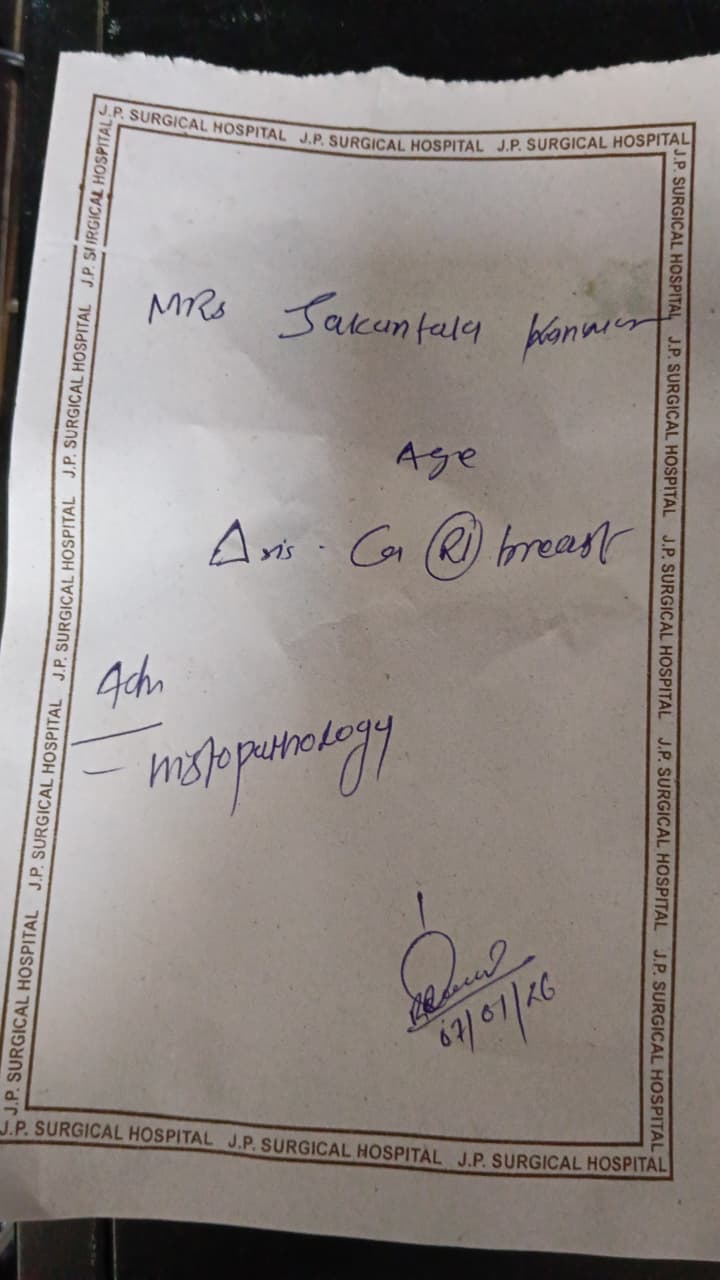 J.P. SURGICAL HOSPITAL J.P. SURGICAL HOSPITAL J.P. SURGICAL HOSPITAL
J.P. SURGICAL HOSPITAL J.P. SURGICAL HOSPITAL J.P. SURGICAL HOSPITAL J.P. SURGICAL HOSPITAL J.P. SURGICAL HOSPITAL
MRs Sakuntala Kanwar
Age
Δsis. Ca (Rt) breast
Adv
- Histopathology
07/01/26
J.P. SURGICAL HOSPITAL J.P. SURGICAL HOSPITAL J.P. SURGICAL HOSPITAL J.P. SURGICAL HOSPITAL J.P. SURGICAL HOSPITAL
J.P. SURGICAL HOSPITAL J.P. SURGICAL HOSPITAL J.P. SURGICAL HOSPITAL